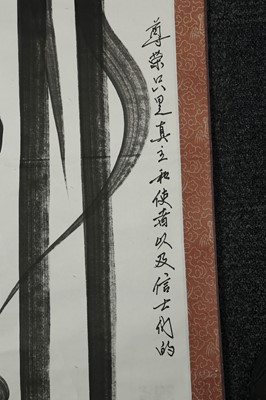 尊荣只是真主和使者以及信士们的